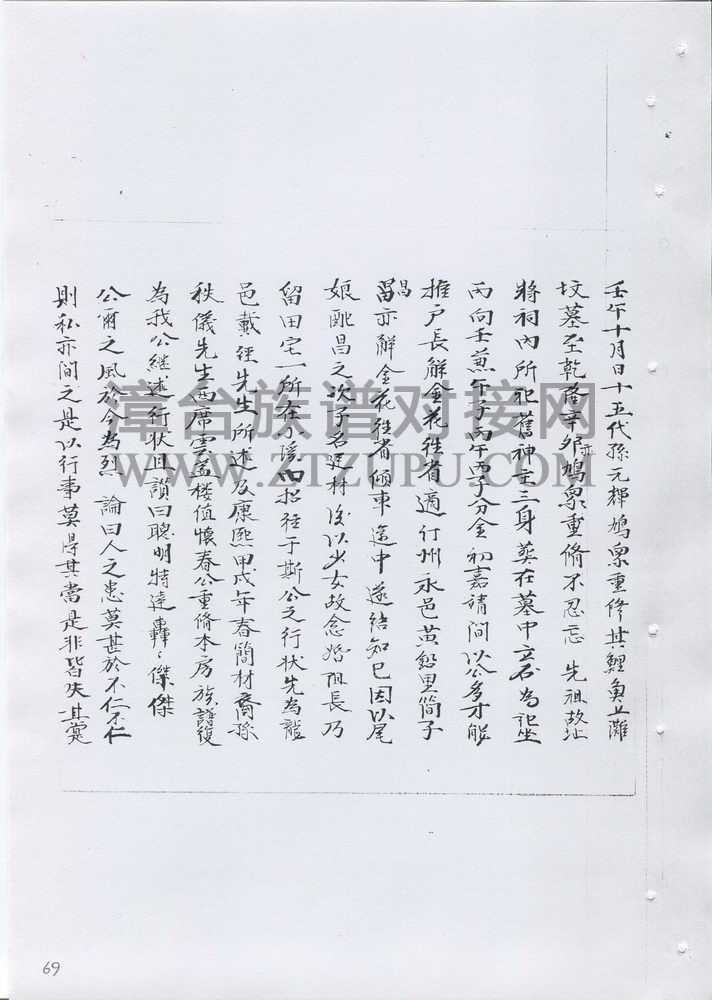 壬午十月日十五代孫元郡鳩眾重修其鯉魚上灘
坟墓至乾隆辛卯亦鳩眾重脩不忍忘 先祖故址
將祠內所祀舊神主三身葬在墓中立石為記坐
丙向壬兼午子丙午丙子分金初嘉靖间以公多才能
推户長解金花往省適汀州永邑黄 里简子
昌亦解金花往省傾車途中遂结知已因以尾
娘配昌之次子名廷材後以少女故念婚阻長乃
留田宅一所在小 内招往于斯公之行状先為龍
邑戴 先生所述及康熙甲戌年春简材裔孫
秩儀先生西席雲盖楼值懷春公重脩本房族譜復
為我公継述行状且讃曰聰明特達轟〻傑傑
公爾之風於今為烈 論曰人之患莫甚於不仁不仁
則私亦间之是以行事莫得其當是非皆失其寔
漳台族谱对接网
WWW.ZTZUPU.COM
69